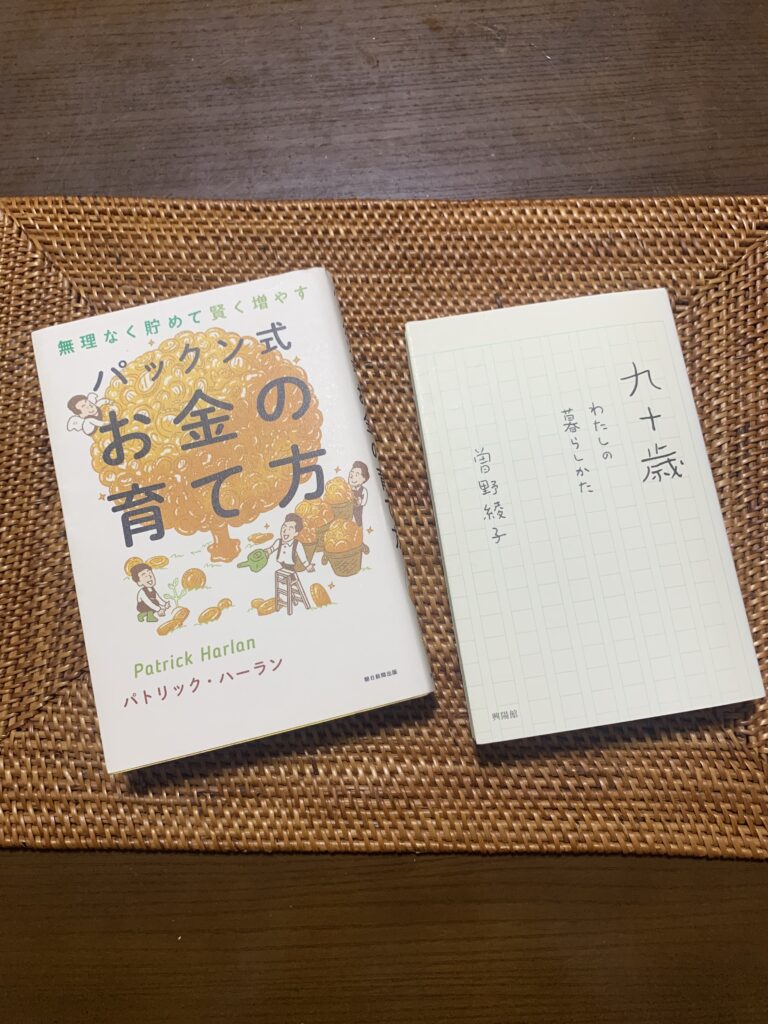 無理なく貯めて賢く増やす
パックン式
お金の
育て方
Patrick Harlan
パトリック・ハーラン
朝日新聞出版
九十歳
わたしの
暮らしかた
曽野綾子
興陽館